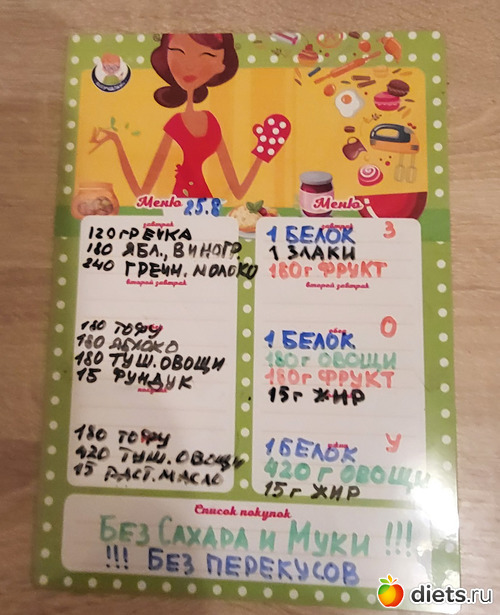 Меню 25.8
завтрак
120 ГРЕЧКА
180 ЯБЛ., ВИНОГР.
240 ГРЕЧН. МОЛОКО
второй завтрак
180 ТОФУ
180 ЯБЛОКО
180 ТУШ. ОВОЩИ
15 ФУНДУК
180 ТОФУ
420 ТУШ. ОВОЩИ
15 РАСТ. МАСЛО
Меню
завтрак
1 БЕЛОК З
1 ЗЛАКИ
180г ФРУКТ
второй завтрак
1 БЕЛОК О
180г ОВОЩИ
180г ФРУКТ
15г ЖИР
1 БЕЛОК У
420 г ОВОЩИ
15г ЖИР
Список покупок
БЕЗ САХАРА И МУКИ !!!
!!! БЕЗ ПЕРЕКУСОВ
diets.ru